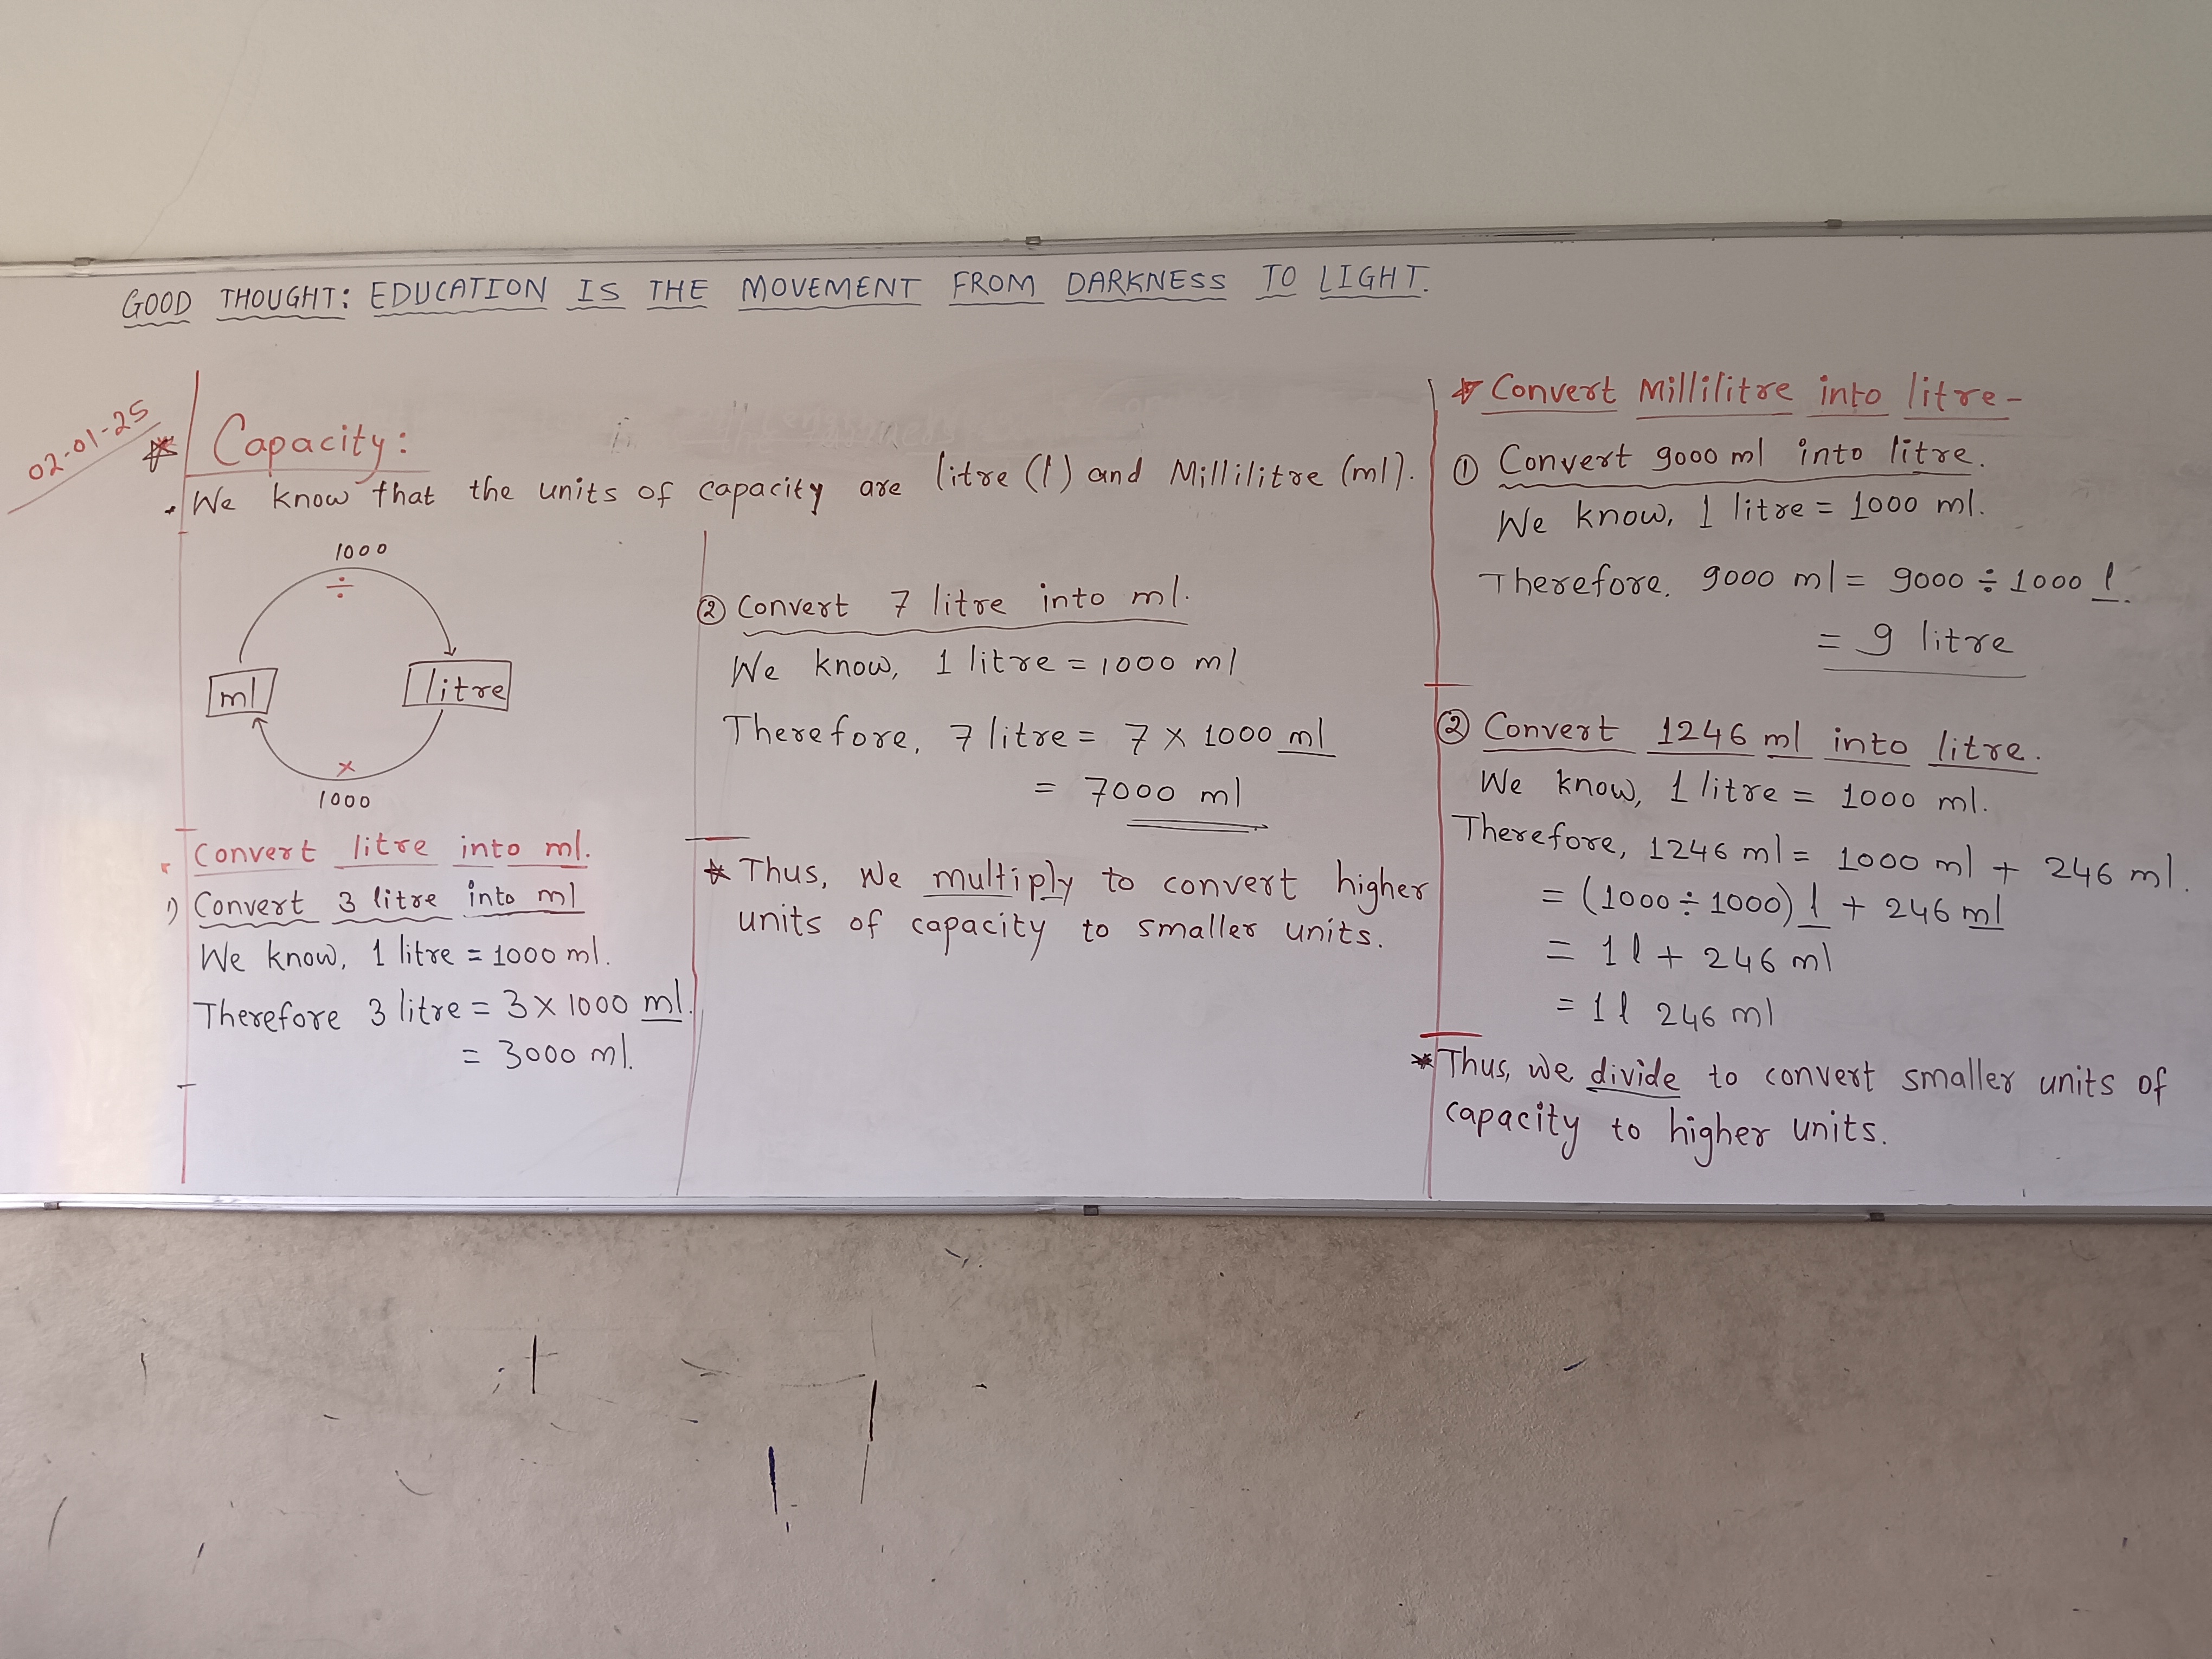 GOOD THOUGHT: EDUCATION IS THE MOVEMENT FROM DARKNESS TO LIGHT.
02-01-25
* Capacity:
• We know that the units of capacity are litre (l) and Millilitre (ml).
1000
÷
ml
litre
×
1000
• Convert litre into ml.
1) Convert 3 litre into ml
We know, 1 litre = 1000 ml.
Therefore 3 litre = 3 × 1000 ml.
= 3000 ml.
② Convert 7 litre into ml.
We know, 1 litre = 1000 ml
Therefore, 7 litre = 7 × 1000 ml
= 7000 ml
* Thus, We multiply to convert higher
units of capacity to smaller units.
* Convert Millilitre into litre-
① Convert 9000 ml into litre.
We know, 1 litre = 1000 ml.
Therefore, 9000 ml = 9000 ÷ 1000 l.
= 9 litre
② Convert 1246 ml into litre.
We know, 1 litre = 1000 ml.
Therefore, 1246 ml = 1000 ml + 246 ml.
= (1000 ÷ 1000) l + 246 ml
= 1 l + 246 ml
= 1 l 246 ml
* Thus, We divide to convert smaller units of
capacity to higher units.